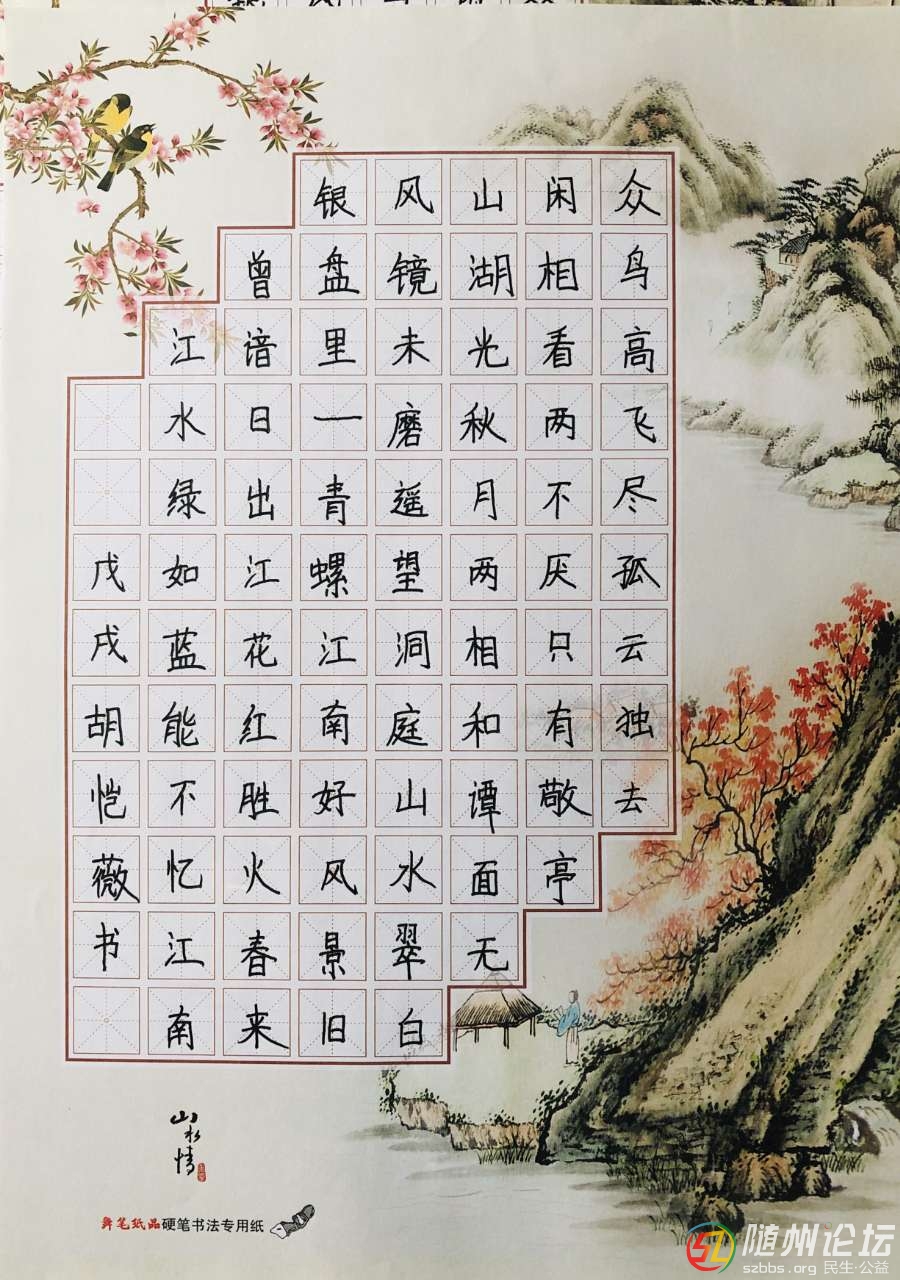 众鸟高飞尽孤云独去
闲相看两不厌只有敬亭
山湖光秋月两相和谭面无
风镜未磨遥望洞庭山水翠白
银盘里一青螺江南好风景旧
曾谙日出江花红胜火春来
江水绿如蓝能不忆江南
戊戌胡恺薇书
山水情
舞笔纸品硬笔书法专用纸
随州论坛
szbbs.org 民生·公益